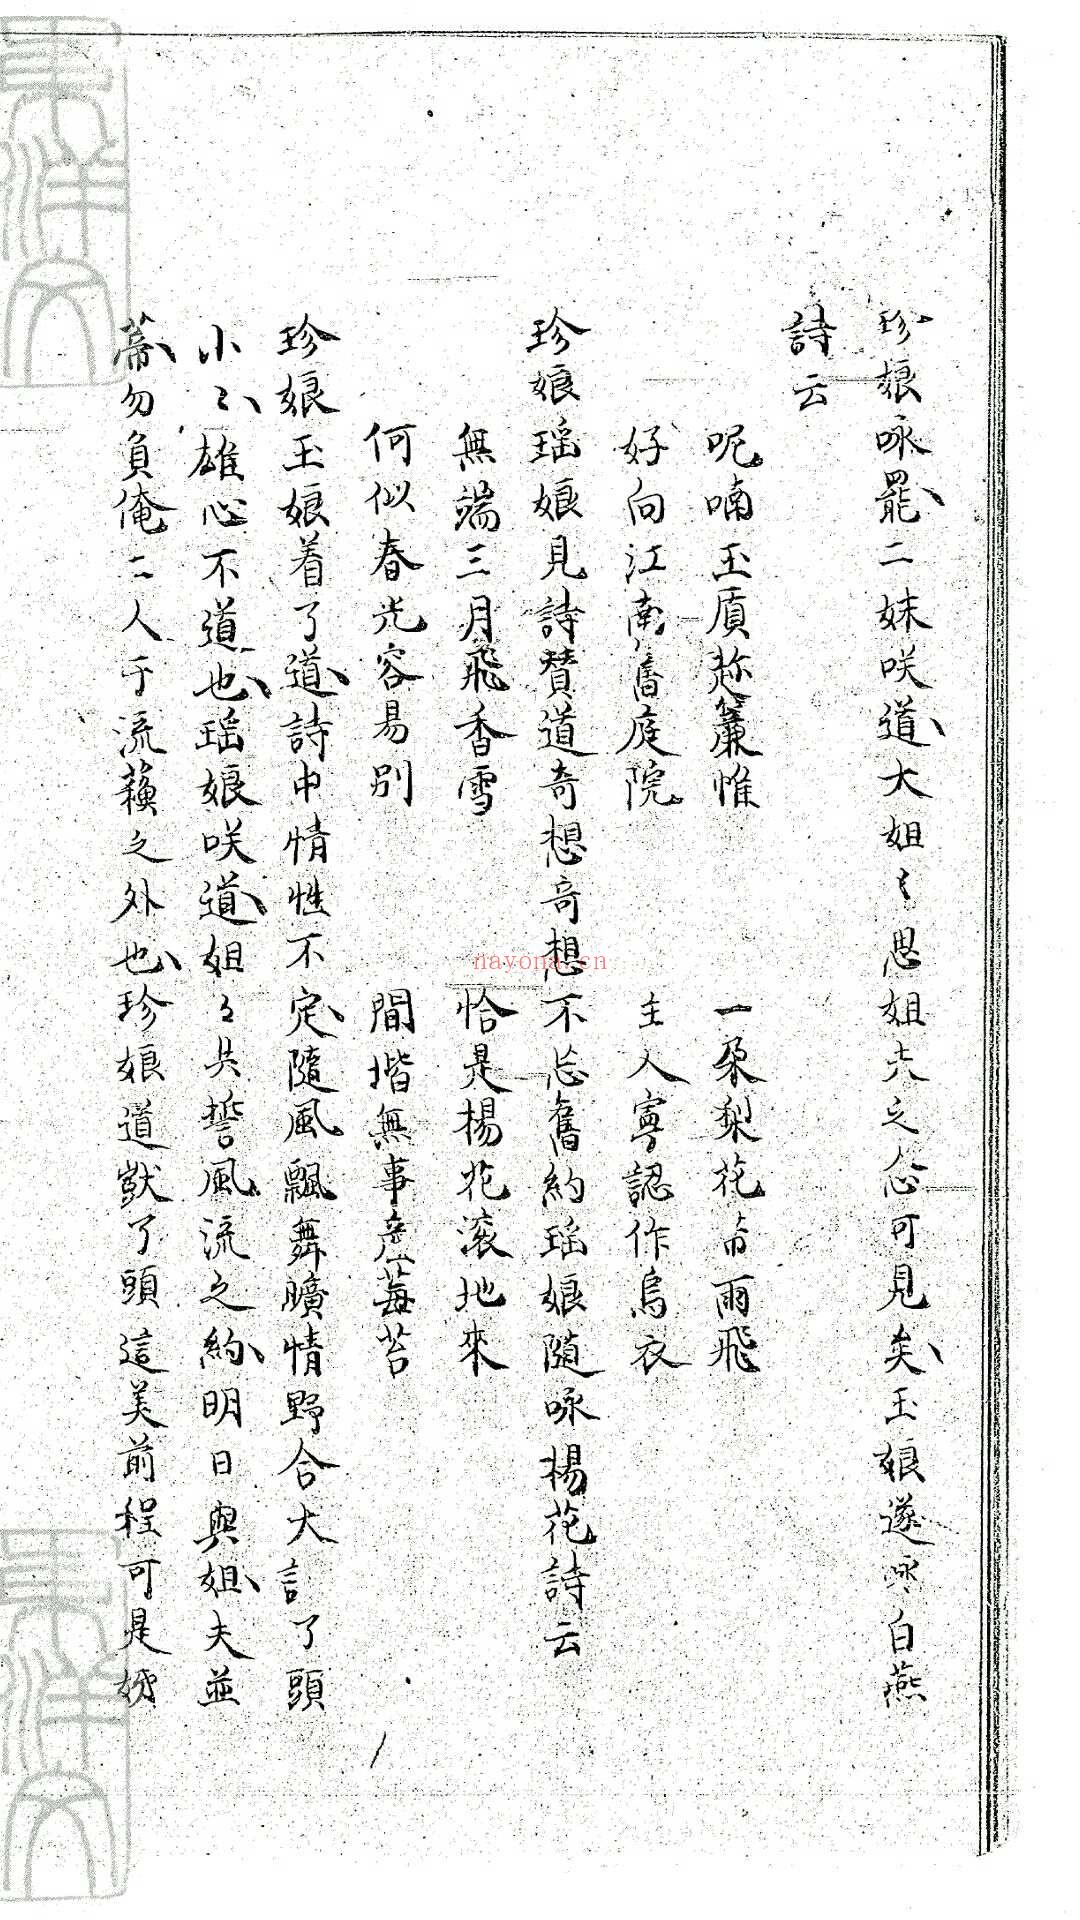 珍娘咏罷二妹咲道大姐〻思姐夫之心可見矣玉娘遂咏白燕
詩云
呢喃玉質趂簾惟　一朶梨花雨飛
好向江南舊庭院　主人寧認作烏衣
珍娘瑶娘見詩賛道奇想奇想不忘舊約瑶娘隨咏楊花詩云
無端三月飛香雪　恰是楊花滾地來
何似春光容易別　閒堦無事莓苔
珍娘玉娘着了道詩中情性不定隨風飄舞曠情野合大言了頭
小〻雄心不道也瑶娘咲道姐〻共誓風流之約明日與姐夫並
蒂勿負俺二人于流蘋之外也珍娘道獃了頭這美前程可是
nayona.cn